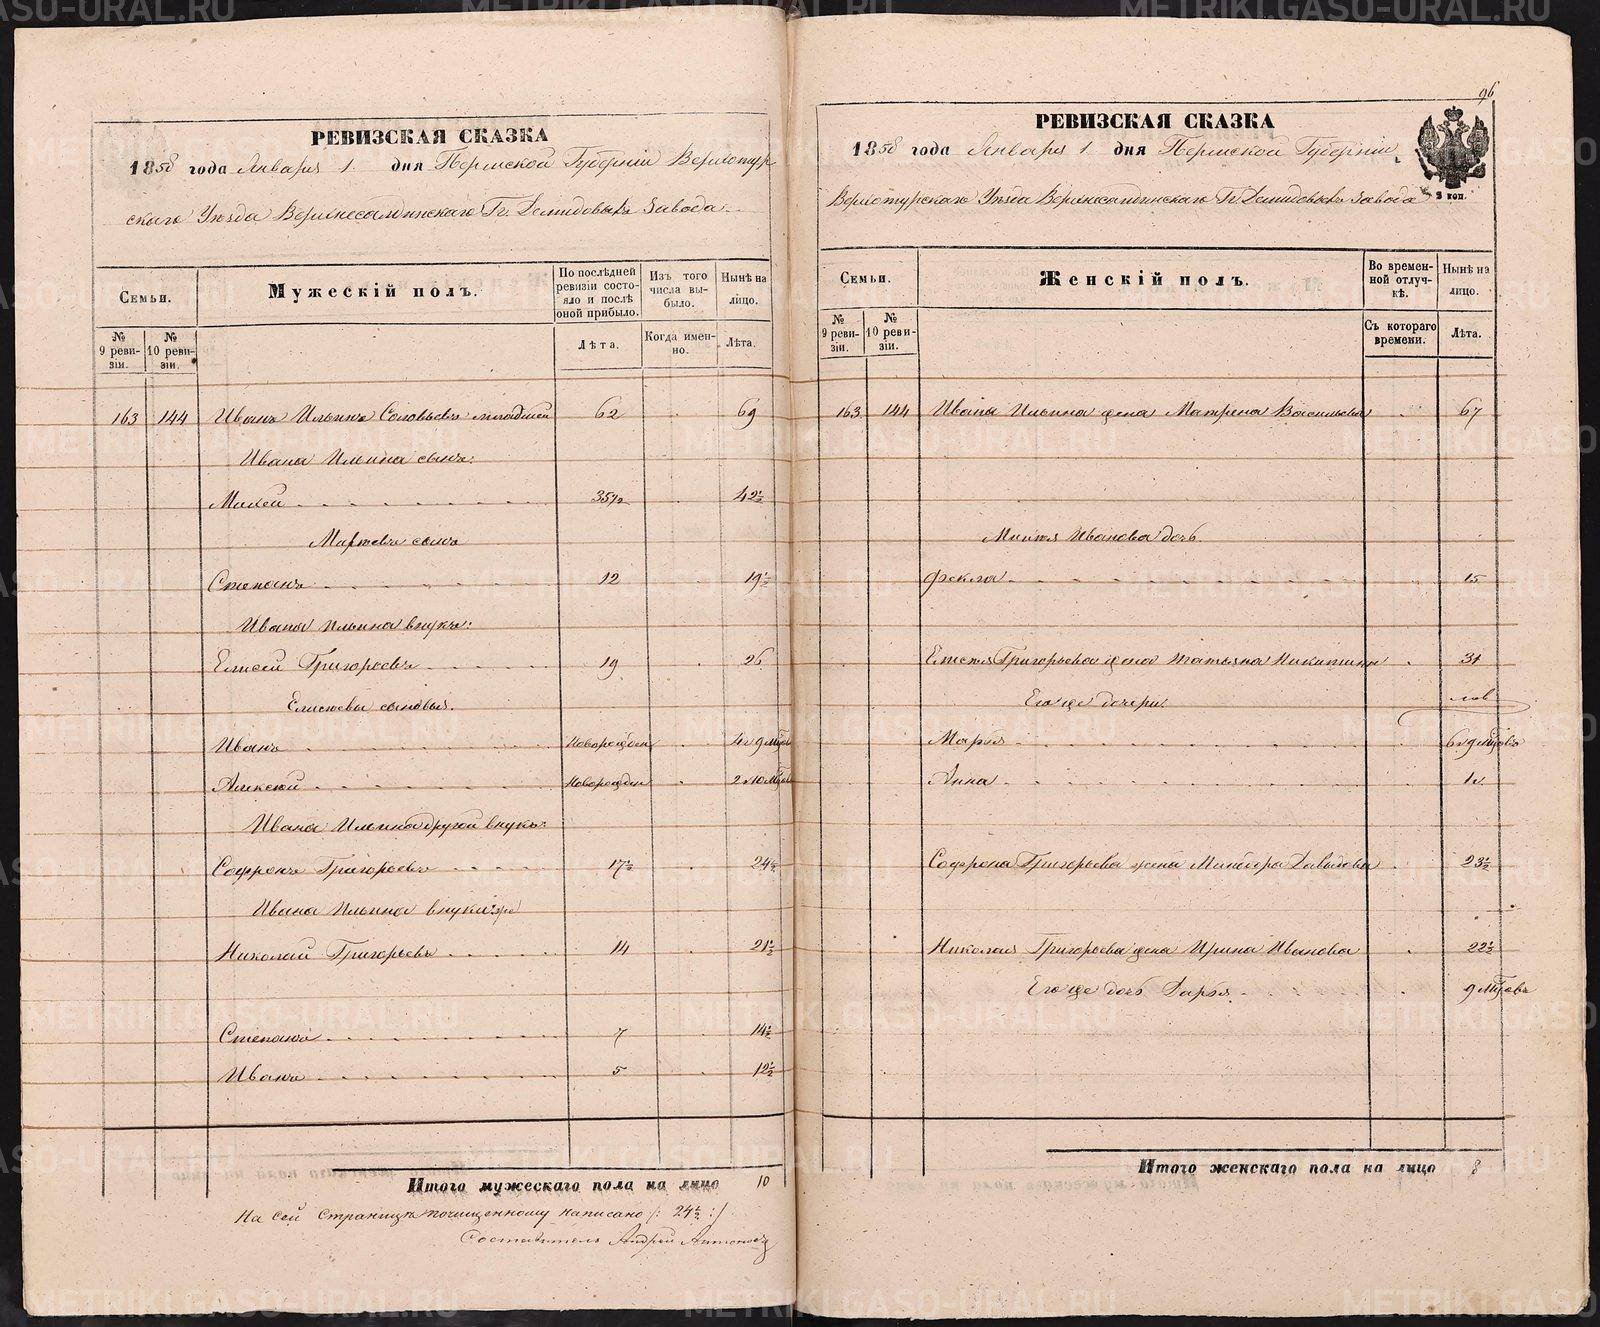 РЕВИЗСКАЯ СКАЗКА
1858 года Января 1. дня Пермской Губернiи Верхотур
скаго Уѣзда Верхнесалдинскаго Гг. Демидовыхъ Завода.
Семьи.
Мужескiй полъ.
По послѣдней ревизiи состояло и послѣ оной прибыло.
Изъ того числа выбыло.
Нынѣ на лицо.
№ 9 ревизiи.
№ 10 ревизiи.
Лѣта.
Когда именно.
Лѣта.
163 144 Иванъ Ильинъ Соловьевъ младшей 62 69
Ивана Ильина сынъ:
Мокей 35½ 42½
Мокеевъ сынъ
Степанъ 12 19½
Ивана Ильина внукъ:
Елисей Григорьевъ 19 26
Елисеевы сыновья.
Иванъ Новорожден 4 г 9 мцовъ
Алексей Новорожден 2 г 10 мцов
Ивана Ильина другой внукъ:
Софронъ Григорьевъ 17½ 24½
Ивана Ильина внуки:
Николай Григорьевъ 14 21½
7 14½
Иванъ 5 12½
Итого мужескаго пола на лицо 10
На сей страницѣ почищенному написано /: 24½ :/
Составитель Андрей Антоновъ
96
РЕВИЗСКАЯ СКАЗКА
1858 года Января 1. дня Пермской Губернiи
Верхотурскаго Уѣзда Верхнесалдинскаго Гг. Демидовыхъ Завода
2 коп.
Семьи.
Женскiй полъ.
Во временной отлучкѣ.
Нынѣ на лицо.
№ 9 ревизiи.
№ 10 ревизiи.
Съ котораго времени.
Лѣта.
163 144 Ивана Ильина жена Матрена Васильева 67
Мокея Иванова дочь
Фекла 15
Елисея Григорьева жена Татьяна Никитина 31
Его же дочери.
Марья 6 г 9 мцовъ
Анна 1 г
Софрона Григорьева жена Минодора Давыдова 23½
Николая Григорьева жена Ирина Иванова 22½
Его же дочь Дарья 9 мцовъ
Итого женскаго пола на лицо 8
METRIKI.GASO-URAL.RU